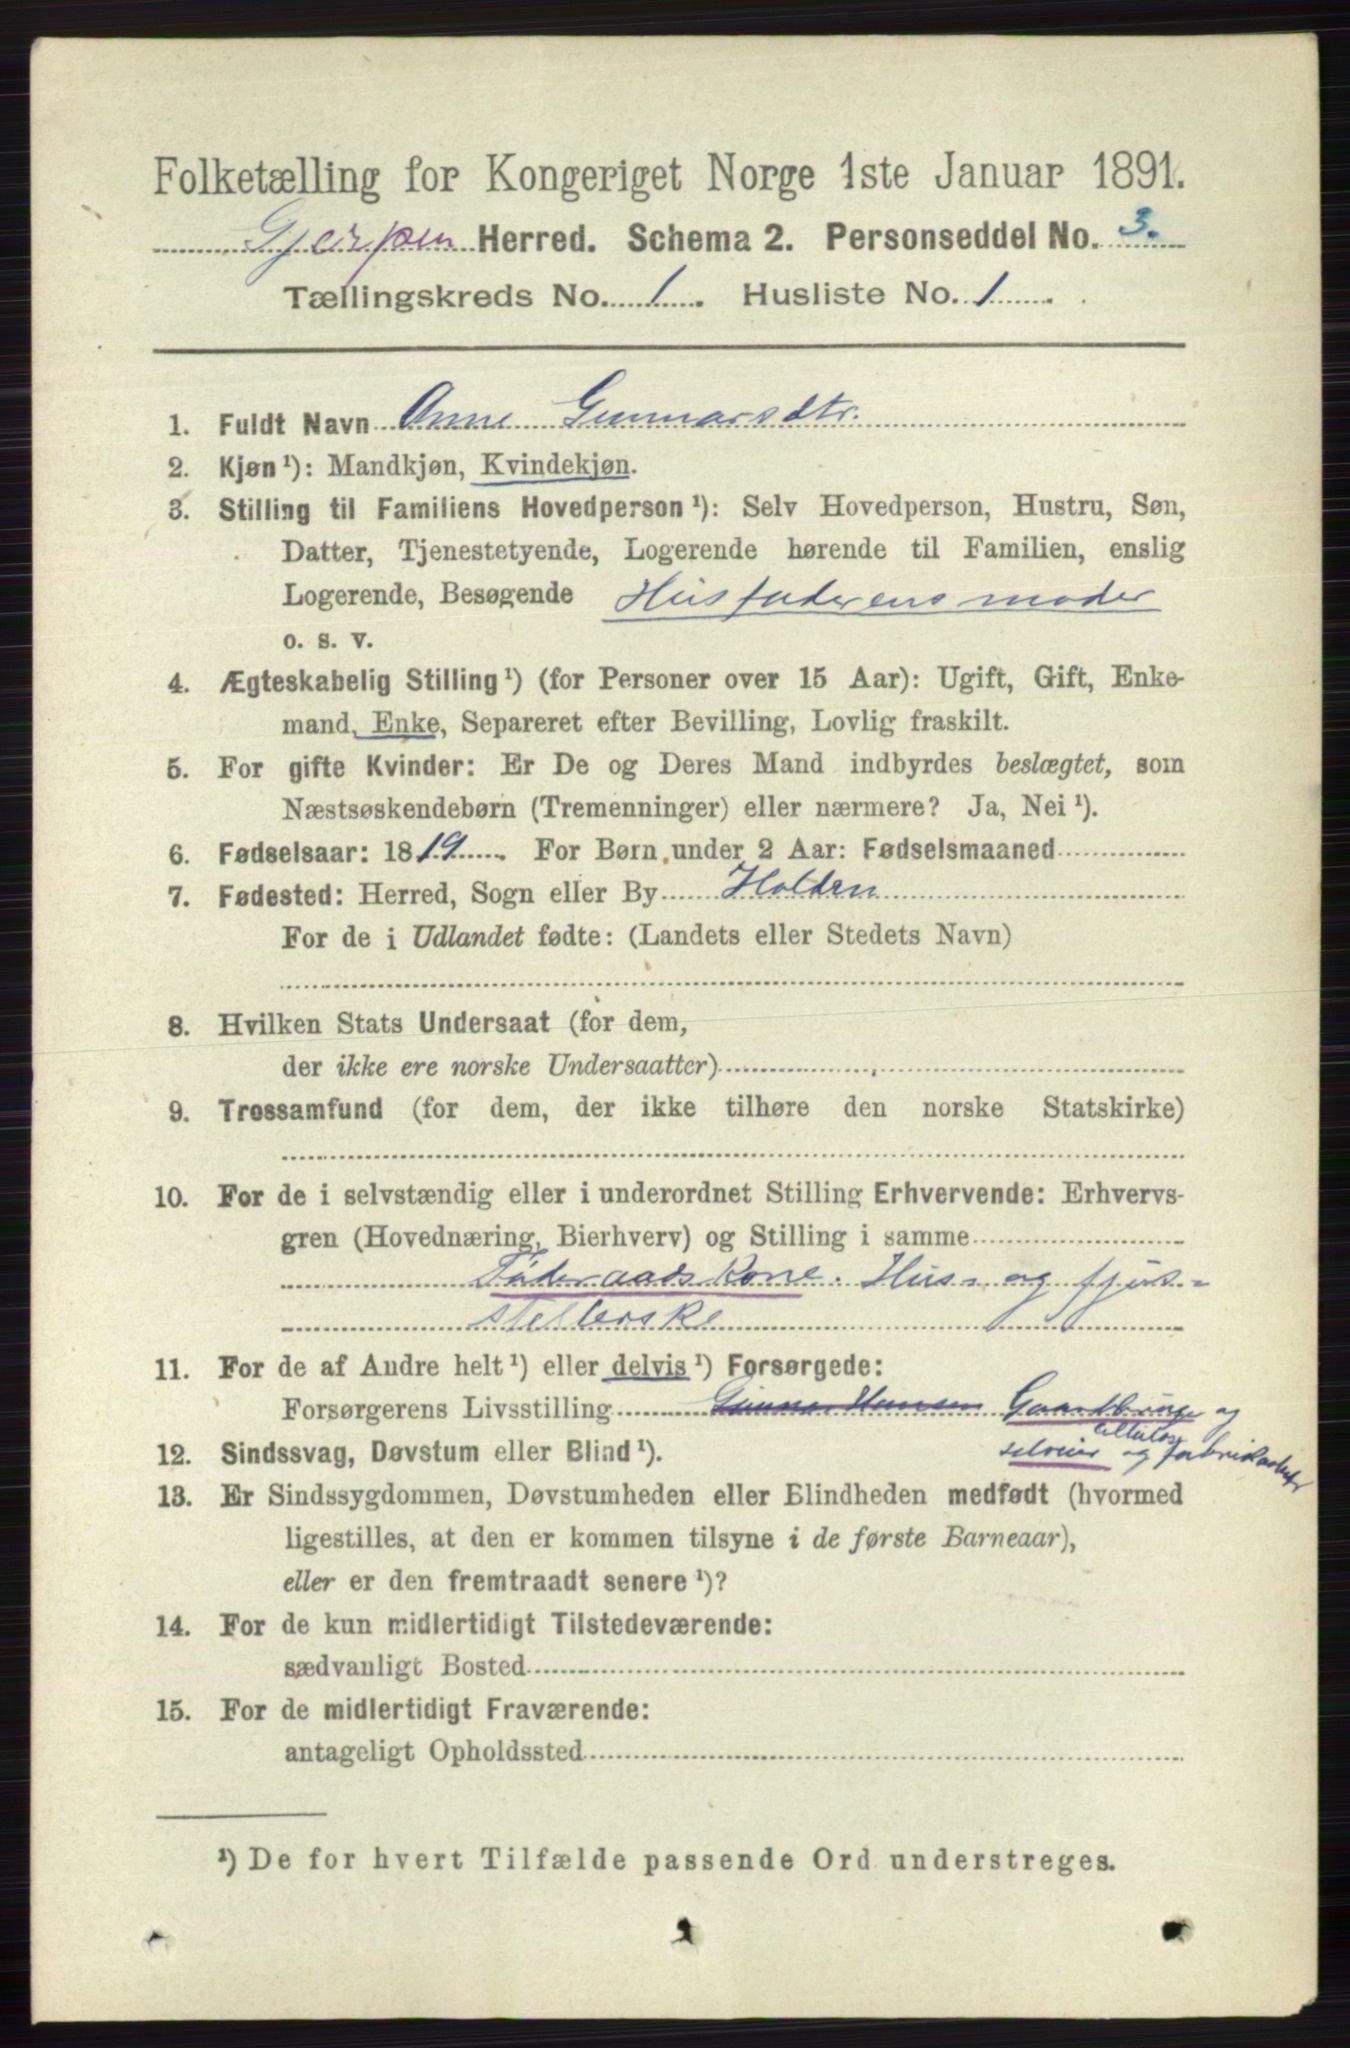 Folketælling for Kongeriget Norge 1ste Januar 1891.
Gjerpen Herred. Schema 2. Personseddel No. 3.
Tællingskreds No. 1. Husliste No. 1.
1. Fuldt Navn Anne Gunnarsdtr.
2. Kjøn ¹): Mandkjøn, Kvindekjøn.
3. Stilling til Familiens Hovedperson ¹): Selv Hovedperson, Hustru, Søn,
Datter, Tjenestetyende, Logerende hørende til Familien, enslig
Logerende, Besøgende Husfaderens moder
o. s. v.
4. Ægteskabelig Stilling ¹) (for Personer over 15 Aar): Ugift, Gift, Enke-
mand, Enke, Separeret efter Bevilling, Lovlig fraskilt.
5. For gifte Kvinder: Er De og Deres Mand indbyrdes beslægtet, som
Næstsøskendebørn (Tremenninger) eller nærmere? Ja, Nei ¹).
6. Fødselsaar: 1819. For Børn under 2 Aar: Fødselsmaaned
7. Fødested: Herred, Sogn eller By Holden
For de i Udlandet fødte: (Landets eller Stedets Navn)
8. Hvilken Stats Undersaat (for dem,
der ikke ere norske Undersaatter)
9. Trossamfund (for dem, der ikke tilhøre den norske Statskirke)
10. For de i selvstændig eller i underordnet Stilling Erhvervende: Erhvervs-
gren (Hovednæring, Bierhverv) og Stilling i samme
Føderaadskone. Hus- og fjøs-
stellerske
11. For de af Andre helt ¹) eller delvis ¹) Forsørgede:
Forsørgerens Livsstilling Gunnar Hansen Gaardbruger og
cellulose
selveier og fabrikarbeider
12. Sindssvag, Døvstum eller Blind ¹).
13. Er Sindssygdommen, Døvstumheden eller Blindheden medfødt (hvormed
ligestilles, at den er kommen tilsyne i de første Barneaar),
eller er den fremtraadt senere ¹)?
14. For de kun midlertidigt Tilstedeværende:
sædvanligt Bosted
15. For de midlertidigt Fraværende:
antageligt Opholdssted
¹) De for hvert Tilfælde passende Ord understreges.